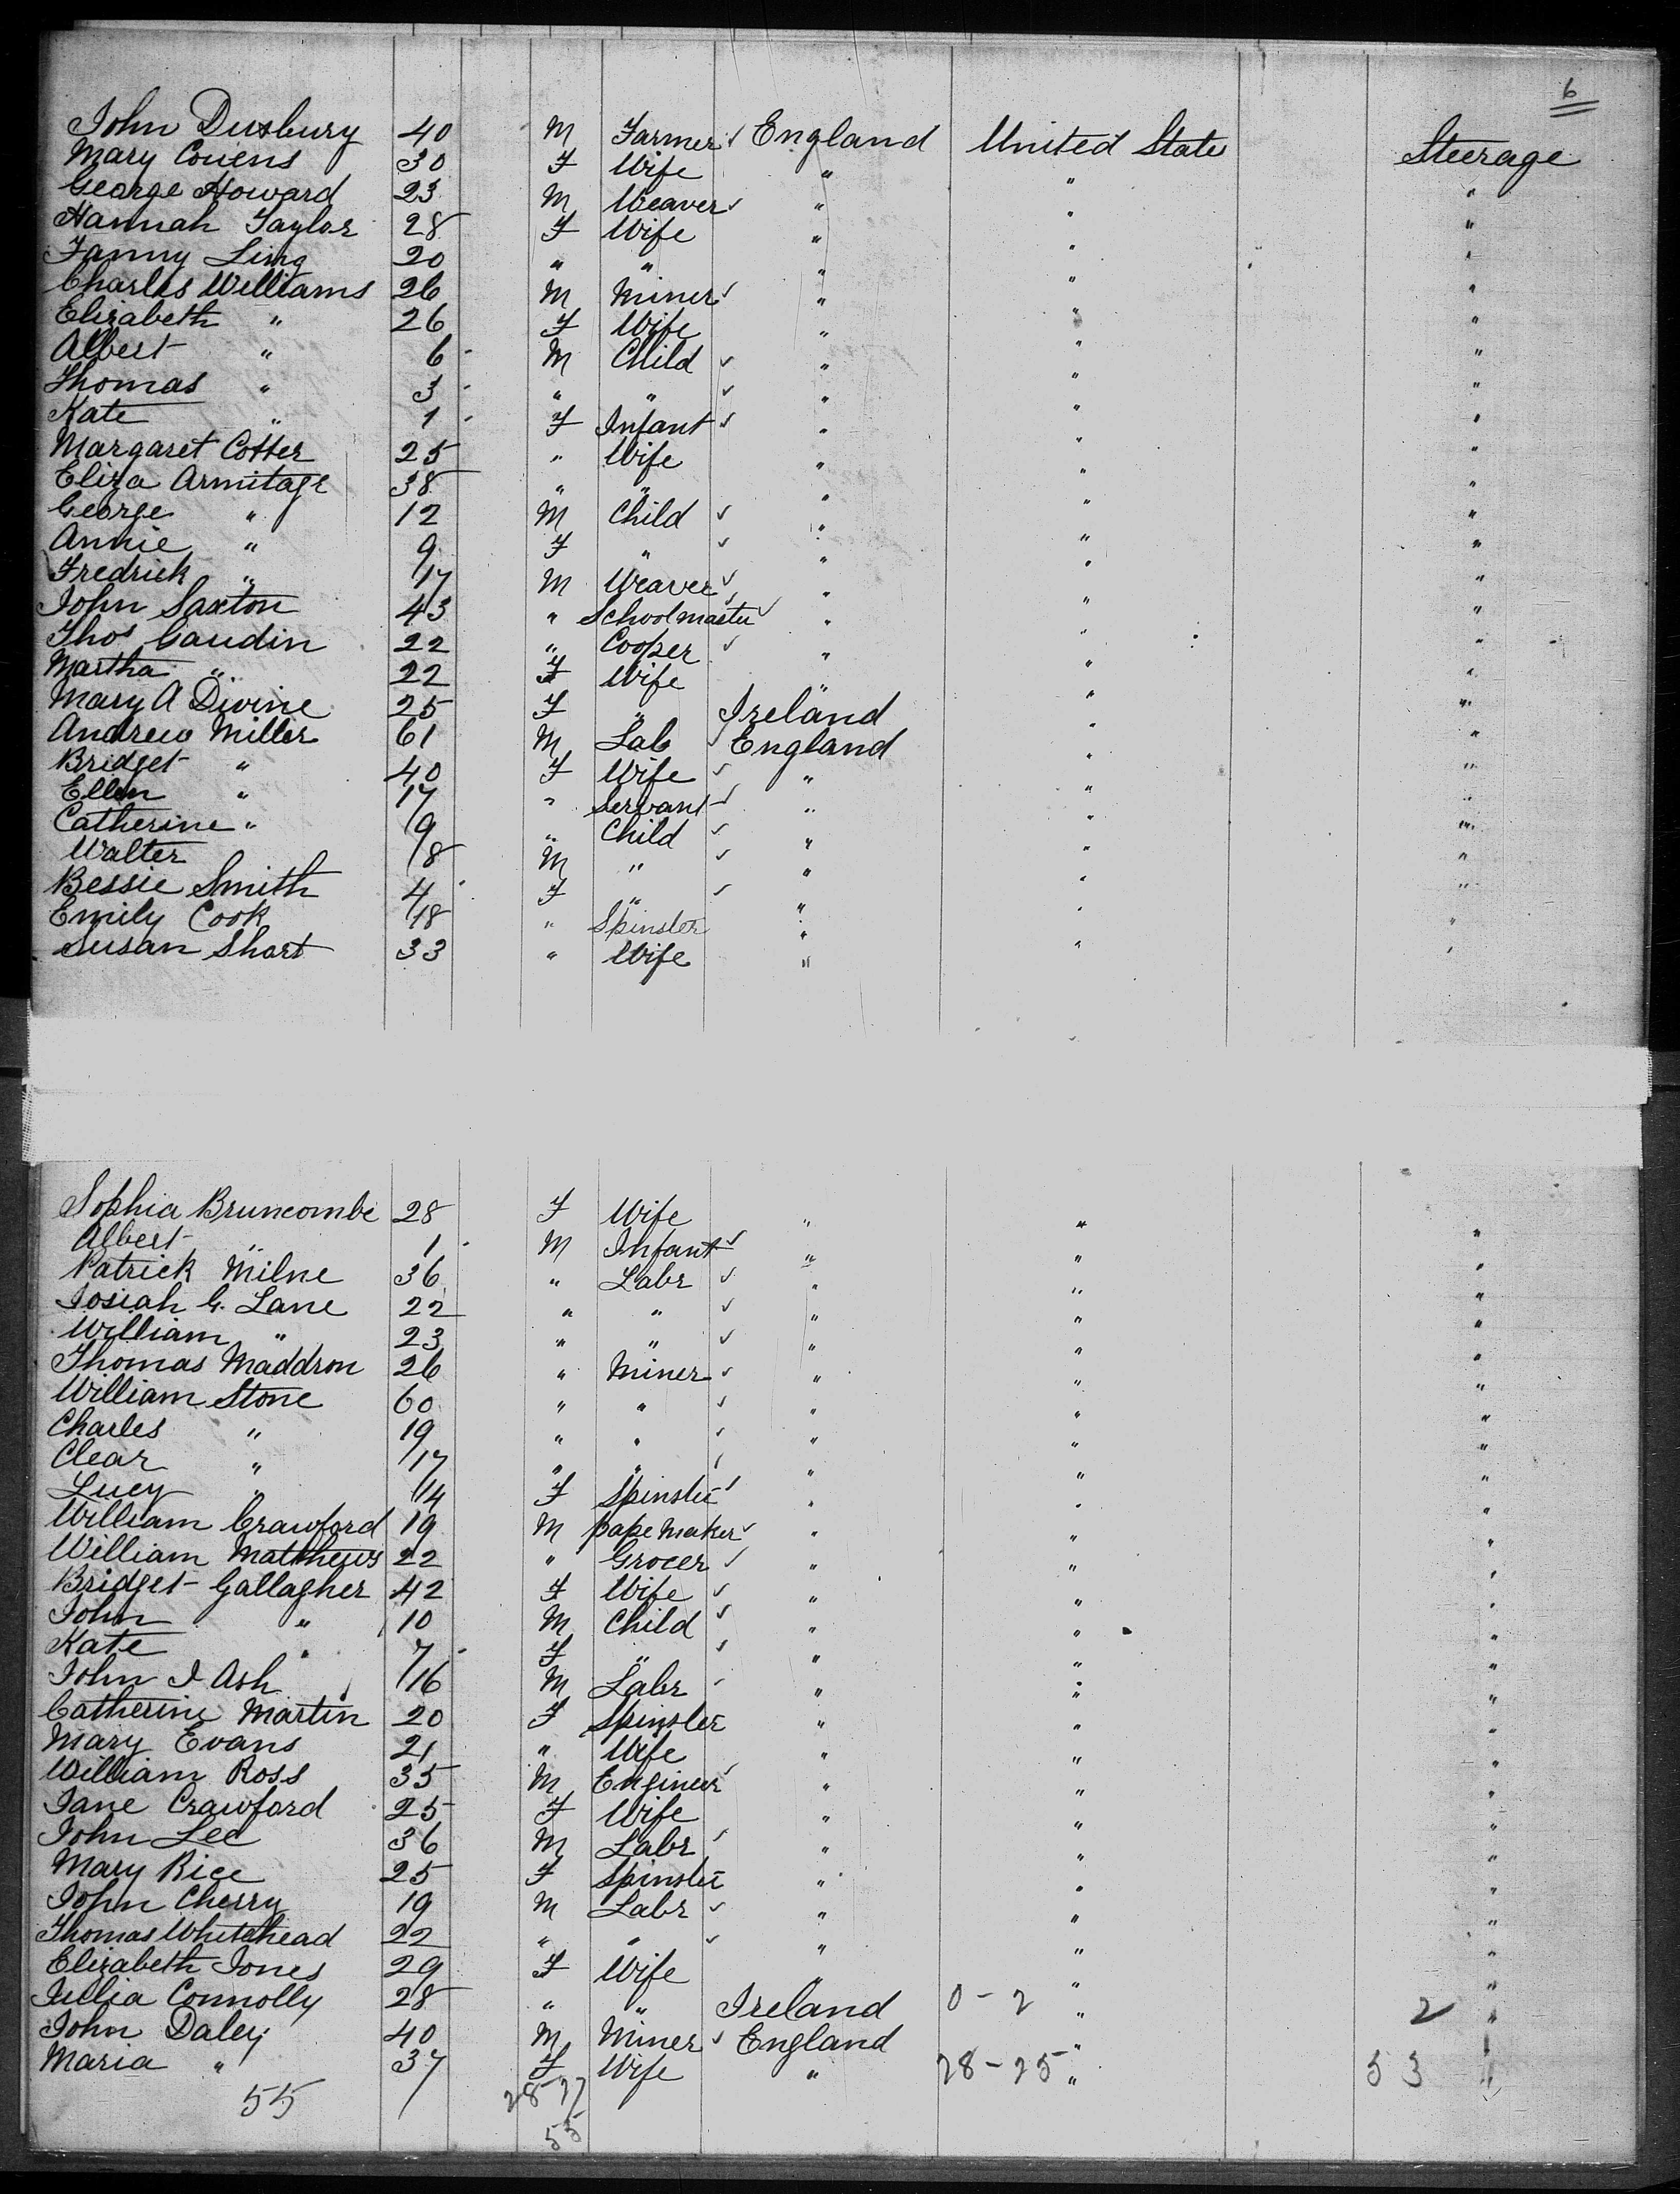 6
John Duxbury 40 M Farmer England United State Steerage
Mary Couens 30 F Wife " " "
George Howard 23 M Weaver " " "
Hannah Taylor 28 F Wife " " "
Fanny Ling 20 " " " " "
Charles Williams 26 M Miner " " "
Elizabeth " 26 F Wife " " "
Albert " 6 M Child " " "
Thomas " 3 " " " " "
Kate " 1 F Infant " " "
Margaret Cotter 25 " Wife " " "
Eliza Armitage 38 " " " " "
George " 12 M Child " " "
Annie " 9 F " " " "
Fredrick " 17 M Weaver " " "
John Saxton 43 " Schoolmaster " " "
Thos Gaudin 22 " Cooper " " "
Martha " 22 F Wife " " "
Mary A Divine 25 F " Ireland " "
Andrew Miller 61 M Lab England " "
Bridget " 40 F Wife " " "
Ellen " 17 " Servant " " "
Catherine " 9 " Child " " "
Walter 8 M " " " "
Bessie Smith 4 F " " " "
Emily Cook 18 " Spinster " " "
Susan Short 33 " Wife " " "
Sophia Bruncombe 28 F Wife " " "
Albert " 1 M Infant " " "
Patrick Milne 36 " Labr " " "
Josiah G. Lane 22 " " " " "
William " 23 " " " " "
Thomas Maddron 26 " Miner " " "
William Stone 60 " " " " "
Charles " 19 " " " " "
Clear " 17 " " " " "
Lucy " 14 F Spinster " " "
William Crawford 19 M Pape Maker " " "
William Matthews 22 " Grocer " " "
Bridget Gallagher 42 F Wife " " "
John " 10 M Child " " "
Kate " 7 F " " " "
John J Ash 16 M Labr " " "
Catherine Martin 20 F Spinster " " "
Mary Evans 21 " Wife " " "
William Ross 35 M Engineer " " "
Jane Crawford 25 F Wife " " "
John Lee 36 M Labr " " "
Mary Rice 25 F Spinster " " "
John Cherry 19 M Labr " " "
Thomas Whitehead 22 " " " " "
Elizabeth Jones 29 F Wife " " "
Jullia Connolly 28 " " Ireland 0-2 " 2 "
John Daley 40 M Miner England " "
Maria " 37 F Wife " 28-25 " 53 "
55 28 27
55